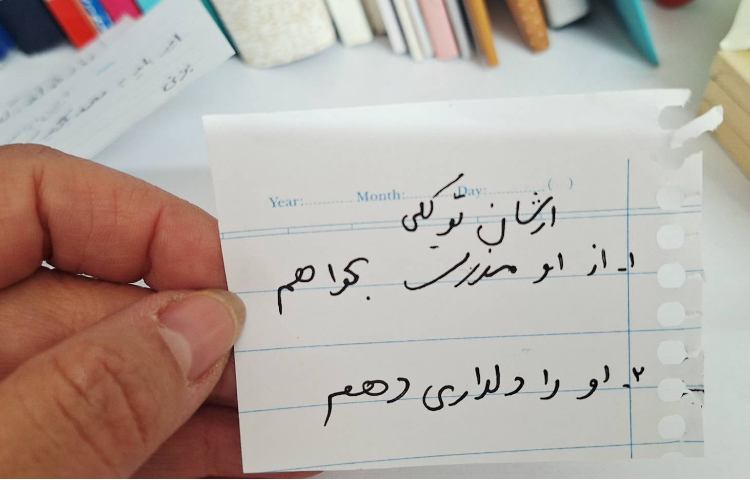 Year:........... Month:........... Day:........... ( )
ارشان توکلی
۱ـ از او معذرت بخواهم
۲ـ او را دلداری دهم